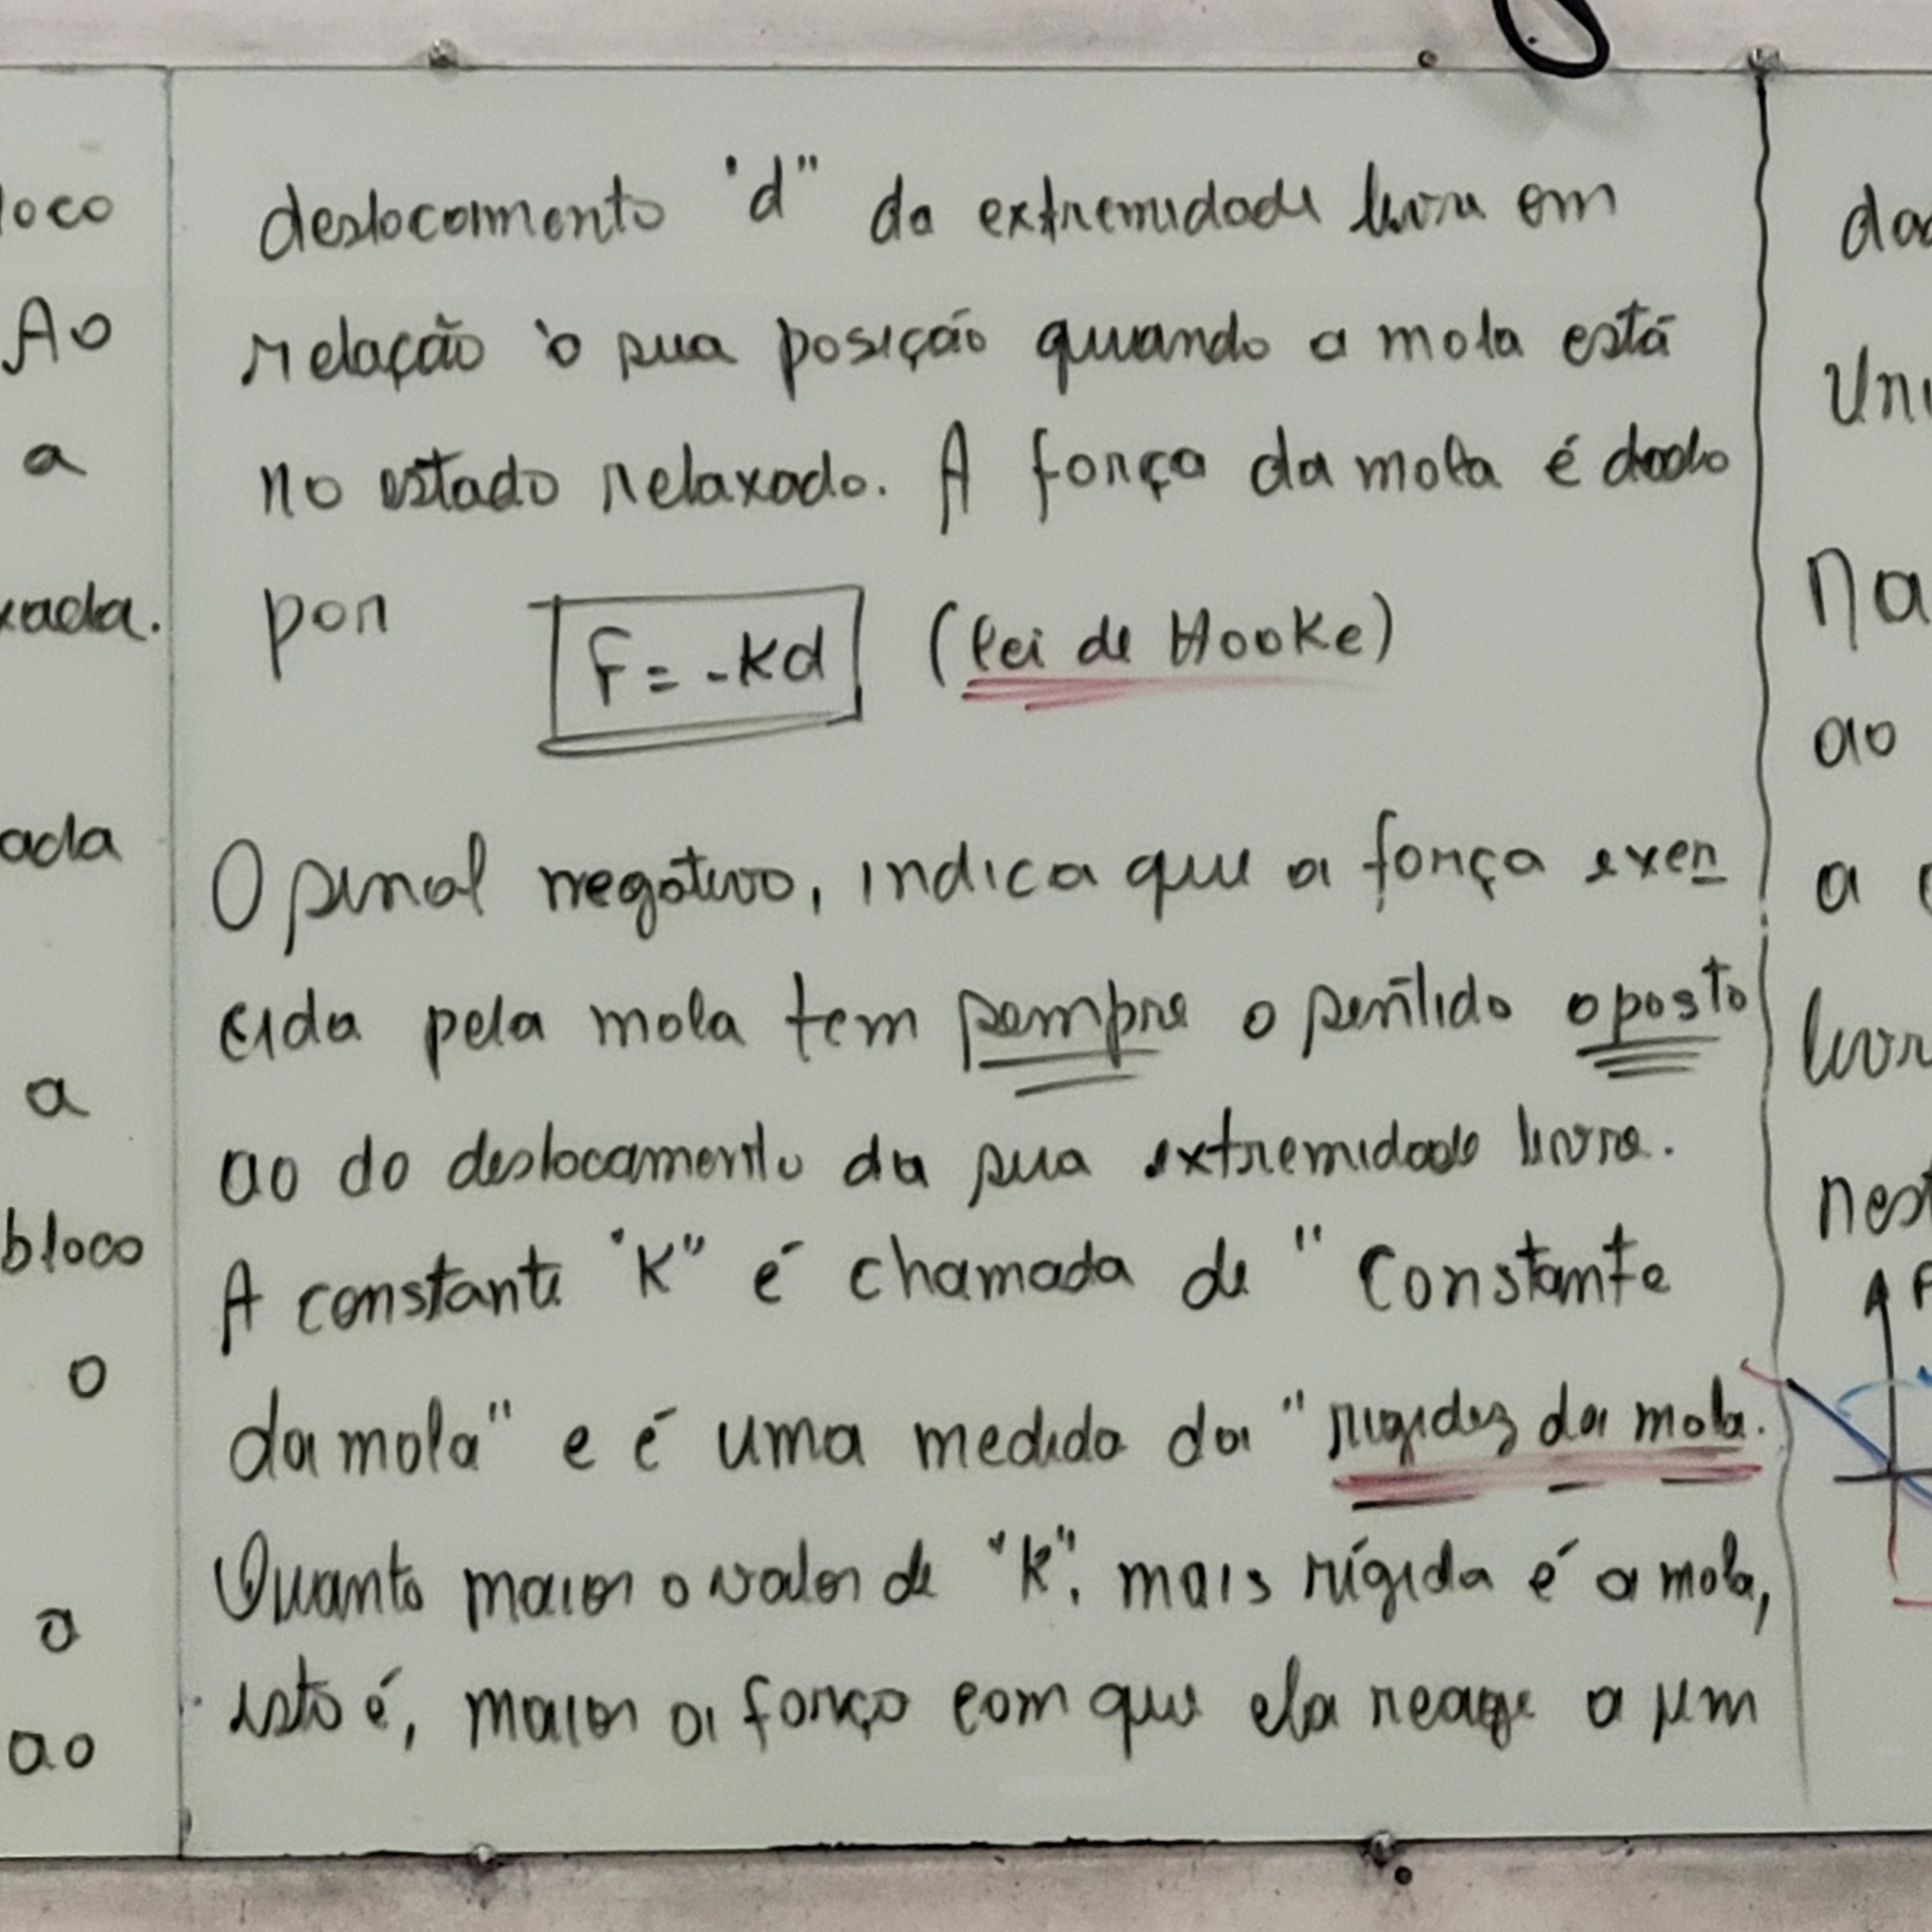 deslocamento "d" da extremidade livre em
relação à sua posição quando a mola está
no estado relaxado. A força da mola é dado
por F = -Kd (lei de Hooke)
O sinal negativo, indica que a força exer
cida pela mola tem sempre o sentido oposto
ao do deslocamento da sua extremidade livre.
A constante "K" é chamada de "Constante
da mola" e é uma medida da "rigidez da mola.
Quanto maior o valor de "K", mais rígida é a mola,
isto é, maior a força com que ela reage a um
loco
Ao
a
xada.
ada
a
bloco
o
a
ao
dad
Uni
Na
ao
a
livr
nest
F